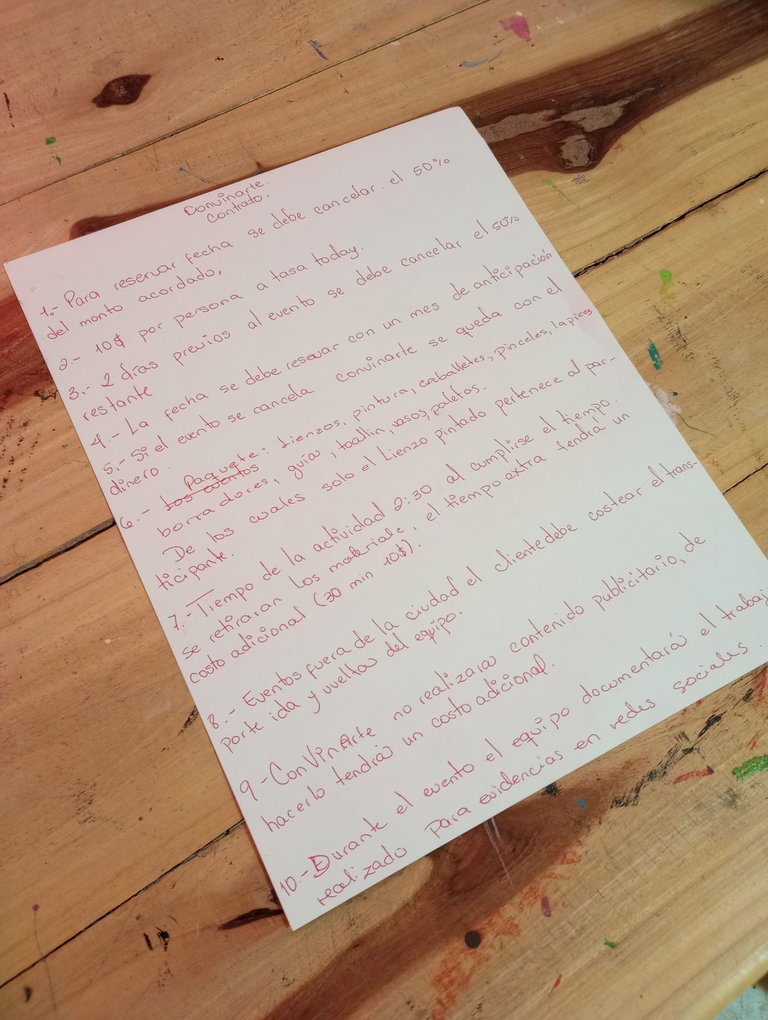 Convinarte.
Contrato.
1.- Para reservar fecha se debe cancelar. el 50%
del monto acordado.
2.- 10$ por persona a tasa today.
3.- 2 días previos al evento se debe cancelar el 50%
restante
4.- La fecha se debe reservar con un mes de anticipación
5.- Si el evento se cancela Convinarte se queda con el
dinero.
6.- Los eventos Paquete: Lienzos, pintura, caballetes, pinceles, lapices
borradores, guía, toallin, vasos, paletas.
De los cuales solo el Lienzo pintado pertenece al par-
ticipante.
7.- Tiempo de la actividad 2:30 al cumplirse el tiempo.
se retiraran los materiale, el tiempo extra tendrá un
costo adicional (30 min 10$).
8.- Eventos fuera de la ciudad el cliente debe costear el trans-
porte ida y vueltas del equipo.
9.- ConVinArte no realizara contenido publicitario, de
hacerlo tendrá un costo adicional.
10.- Durante el evento el equipo documentará el trabajo
realizado para evidencias en redes sociales.